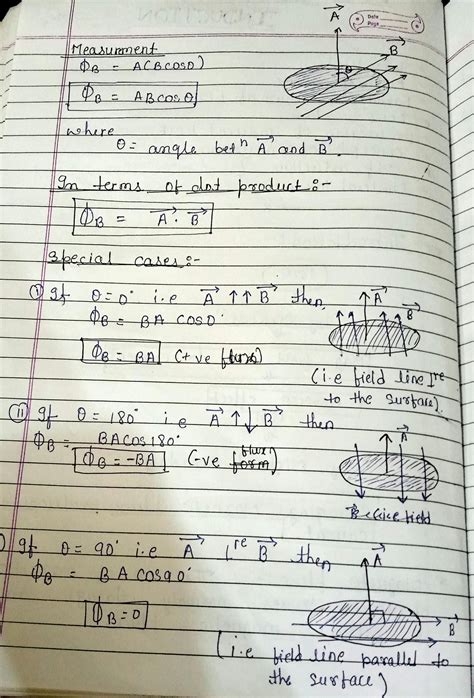 Date
Page
A⃗
Measurment
B⃗
ϕ_B = A(BCOSθ)
θ
ϕ_B = ABCOSθ
where
θ = angle betⁿ A⃗ and B⃗.
In terms of dot product :-
ϕ_B = A⃗ . B⃗
special cases :-
(i) If θ = 0° i.e A⃗ ↑↑ B⃗ then,
A⃗
B⃗
ϕ_B = BA COS0°
ϕ_B = BA (+ve flux)
(i.e field line ⊥re
to the surface).
(ii) If θ = 180° i.e A⃗ ↑↓ B⃗ then
ϕ_B = BACOS180°
A⃗
ϕ_B = -BA (-ve flux
form)
field
) If θ = 90° i.e A⃗ ⊥re B⃗ then
A⃗
ϕ_B = BACOS90°
ϕ_B = 0
B⃗
(i.e field line parallel to
the surface)